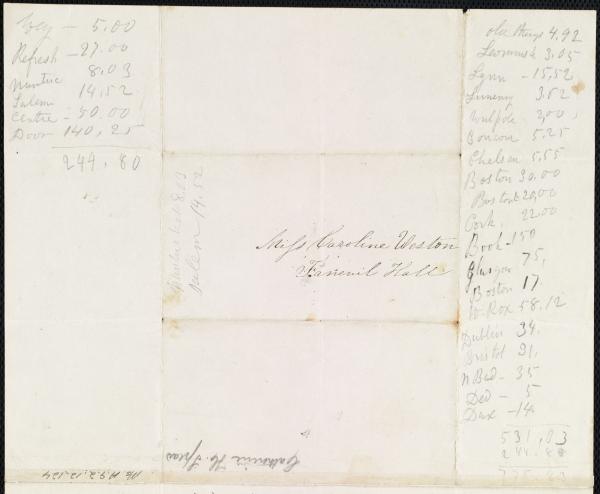 Wey - 5.00
Refresh - 27.00
Nantuc 8.03
Salem 14,52
Centre - 50.00
Door 140, 25
244.80
Salem 14.52
Miss Caroline Weston
Faneuil Hall
old things 4.92
Leominst 3.05
Lynn - 15,52
Luneny 3.52
Walpole 2,00
Concon 5.25
Chelsea 5.55
Boston 30.00
Boston 20,00
Cork, 22.00
Book - 150
Glasgow 75,
Boston 17.
W. Rox 58.12
Dublin 34.
Bristol 31,
N Bed - 35
Ded - 5
Dux - 14
531,03
244.80
Catherine H. Spear
Ms. A.9.2.12.124